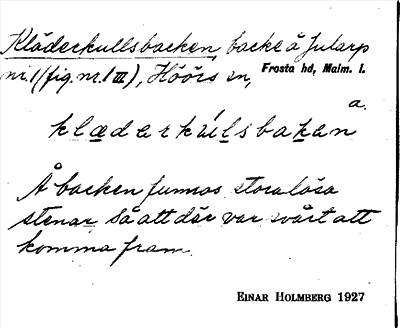 Kläderkullsbacken, backe å Jularp
nr. 1 (fig. nr. 1 III), Höörs sn, Frosta hd, Malm. l.
a.
klæderkúlsbakan
Å backen funnos stora lösa
stenar så att där var svårt att
komma fram.
EINAR HOLMBERG 1927